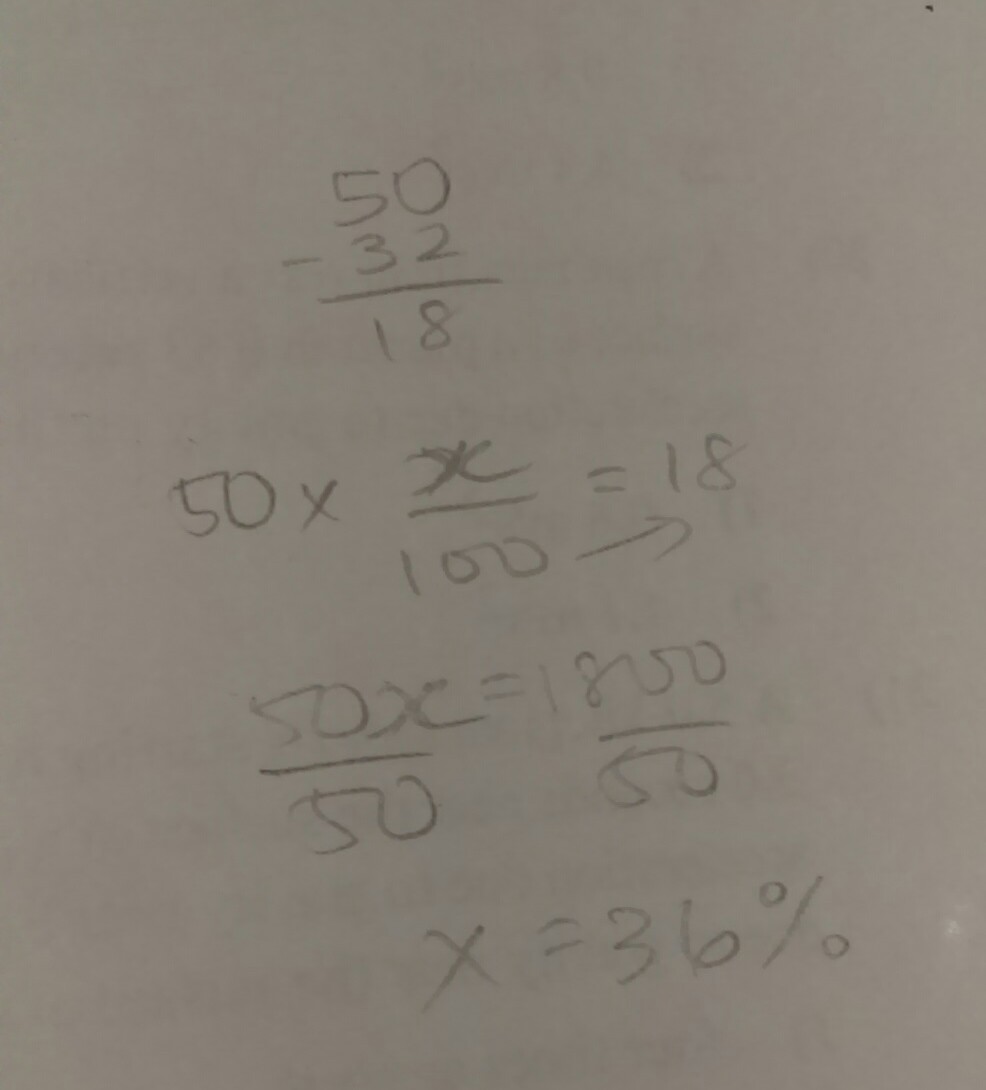 50
- 32
18
50 × x/100 = 18
50x/50 = 1800/50
x = 36%